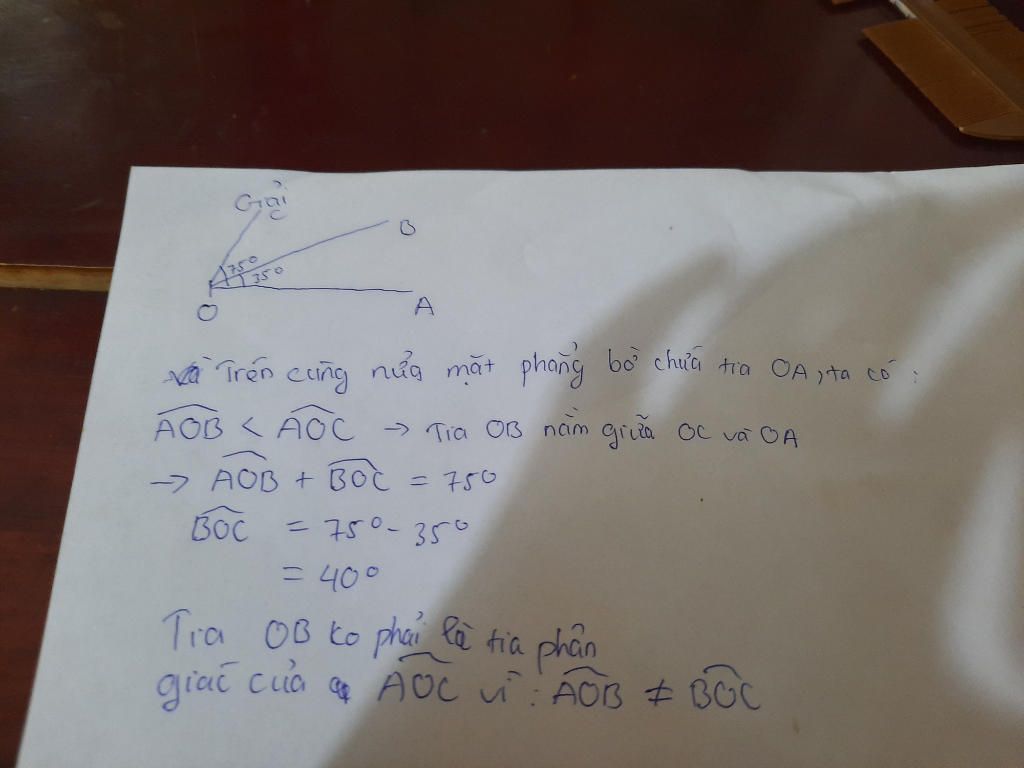 Giải
C
B
75°
35°
O
A
Trên cùng nửa mặt phẳng bờ chứa tia OA, ta có:
AOB < AOC → Tia OB nằm giữa OC và OA
→ AOB + BOC = 75°
BOC = 75° - 35°
= 40°
Tia OB ko phải là tia phân
giác của AOC vì: AOB ≠ BOC